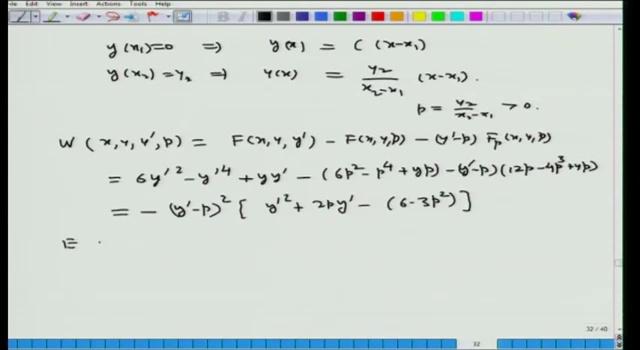 Edit View Insert Actions Tools Help
y(x₁)=0 ⇒ y(x) = C (x-x₁)
y(x₂)=y₂ ⇒ y(x) = y₂/(x₂-x₁) (x-x₁).
p = y₂/(x₂-x₁) >0.
W (x,y,y',p) = F(x,y,y') - F(x,y,p) - (y'-p) Fₚ(x,y,p)
= 6y'² - y'⁴ + yy' - (6p² - p⁴ + yp) - (y'-p)(12p-4p³+yp)
= - (y'-p)² [ y'² + 2py' - (6-3p²) ]
E .
32 / 40
32